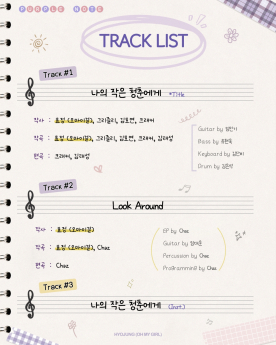 PURPLE NOTE
TRACK LIST
Track #1
나의 작은 청춘에게 *Title
작사 : 효정 (오마이걸),
작곡 : 효정 (오마이걸),
편곡 :
Guitar by
Bass by
Keyboard by
Drum by
Track #2
Look Around
작사 : 효정 (오마이걸)
작곡 : 효정 (오마이걸), Chez
편곡 : Chez
EP by Chez
Guitar by
Percussion by Chez
Programming by Chez
Track #3
나의 작은 청춘에게 (Inst.)
HYOJUNG (OH MY GIRL)